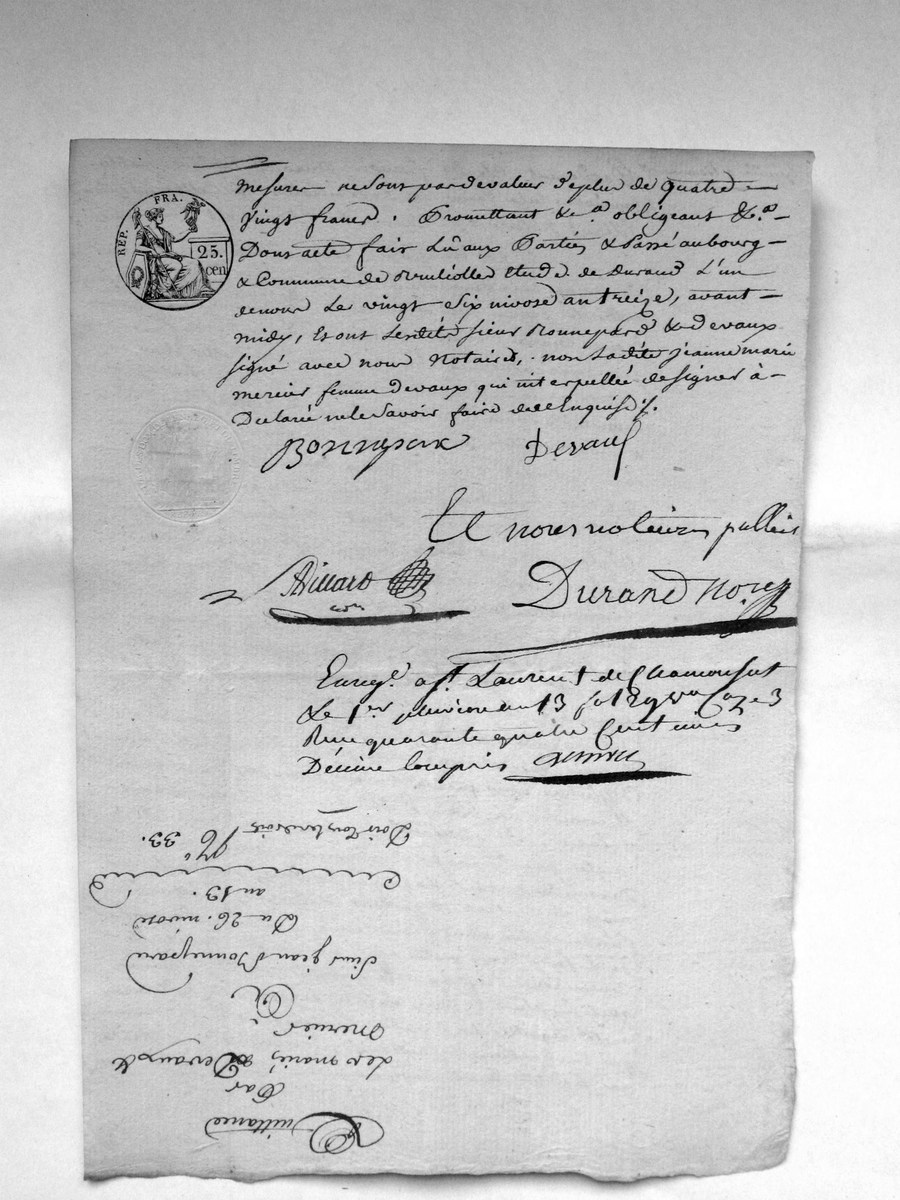 REP. FRA.
25. cen
mesurer ne sont pas de valeur de plus de quatre
vingt francs. Promettant &a obligeant &a
Dont acte fait Lû aux Parties & Passé au bourg
& Commune de étude de Durand L'un
de nous Le vingt Six nivose an treize, avant
midy, Et ont Lesdits sieur Bonnepard & devaux
signé avec nous Notaires, non Ladite jeanne marie
mercier femme devaux qui interpellée de signer à
Declaré ne le Savoir faire de ce Enquise
Bonnepard Devaux
Et nous notaires
Durand Nore
Enregé. a St. Laurent de Chamousset
Le 1er pluviose an 13 fo 189 vo Caze 3
Recu quarante quatre Centimes
Décime Compris
Quittance
Par
Les mariés Devaux &
mercier
à
Sieur jean Bonnepard
Du 26. nivose
an 13.
No 33.